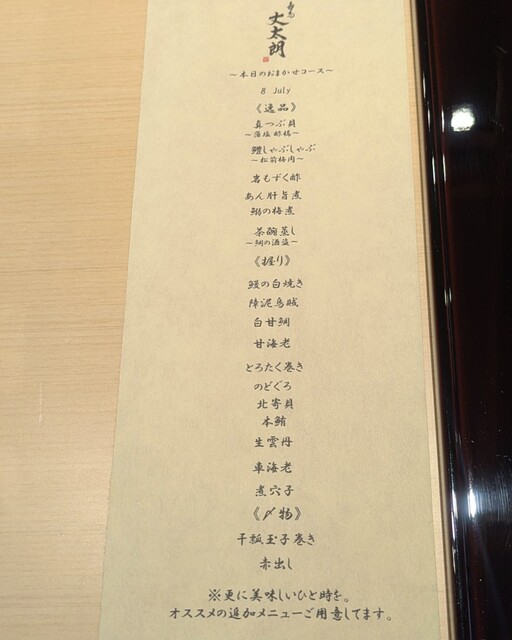 丈太朗
～本日のおまかせコース～
8 July
《逸品》
真つぶ貝
～藻塩 酢橘～
鱧しゃぶしゃぶ
～松前梅肉～
岩もずく酢
あん肝旨煮
鰯の梅煮
茶碗蒸し
～鯛の酒盗～
《握り》
鰻の白焼き
障泥烏賊
白甘鯛
甘海老
とろたく巻き
のどぐろ
北寄貝
本鮪
生雲丹
車海老
煮穴子
《〆物》
干瓢玉子巻き
赤出し
※更に美味しいひと時を。
オススメの追加メニューご用意してます。